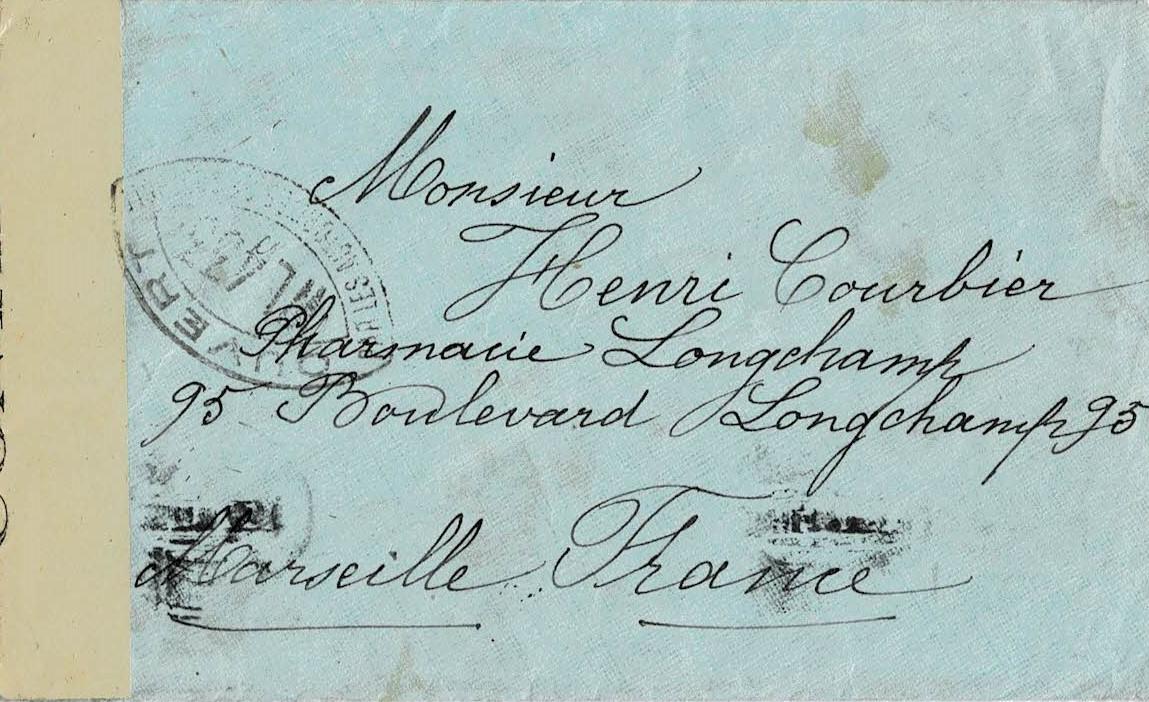 Monsieur
Henri Courbier
Pharmacie Longchamp
95 Boulevard Longchamp 95
Marseille France
OUVERT
MILIT